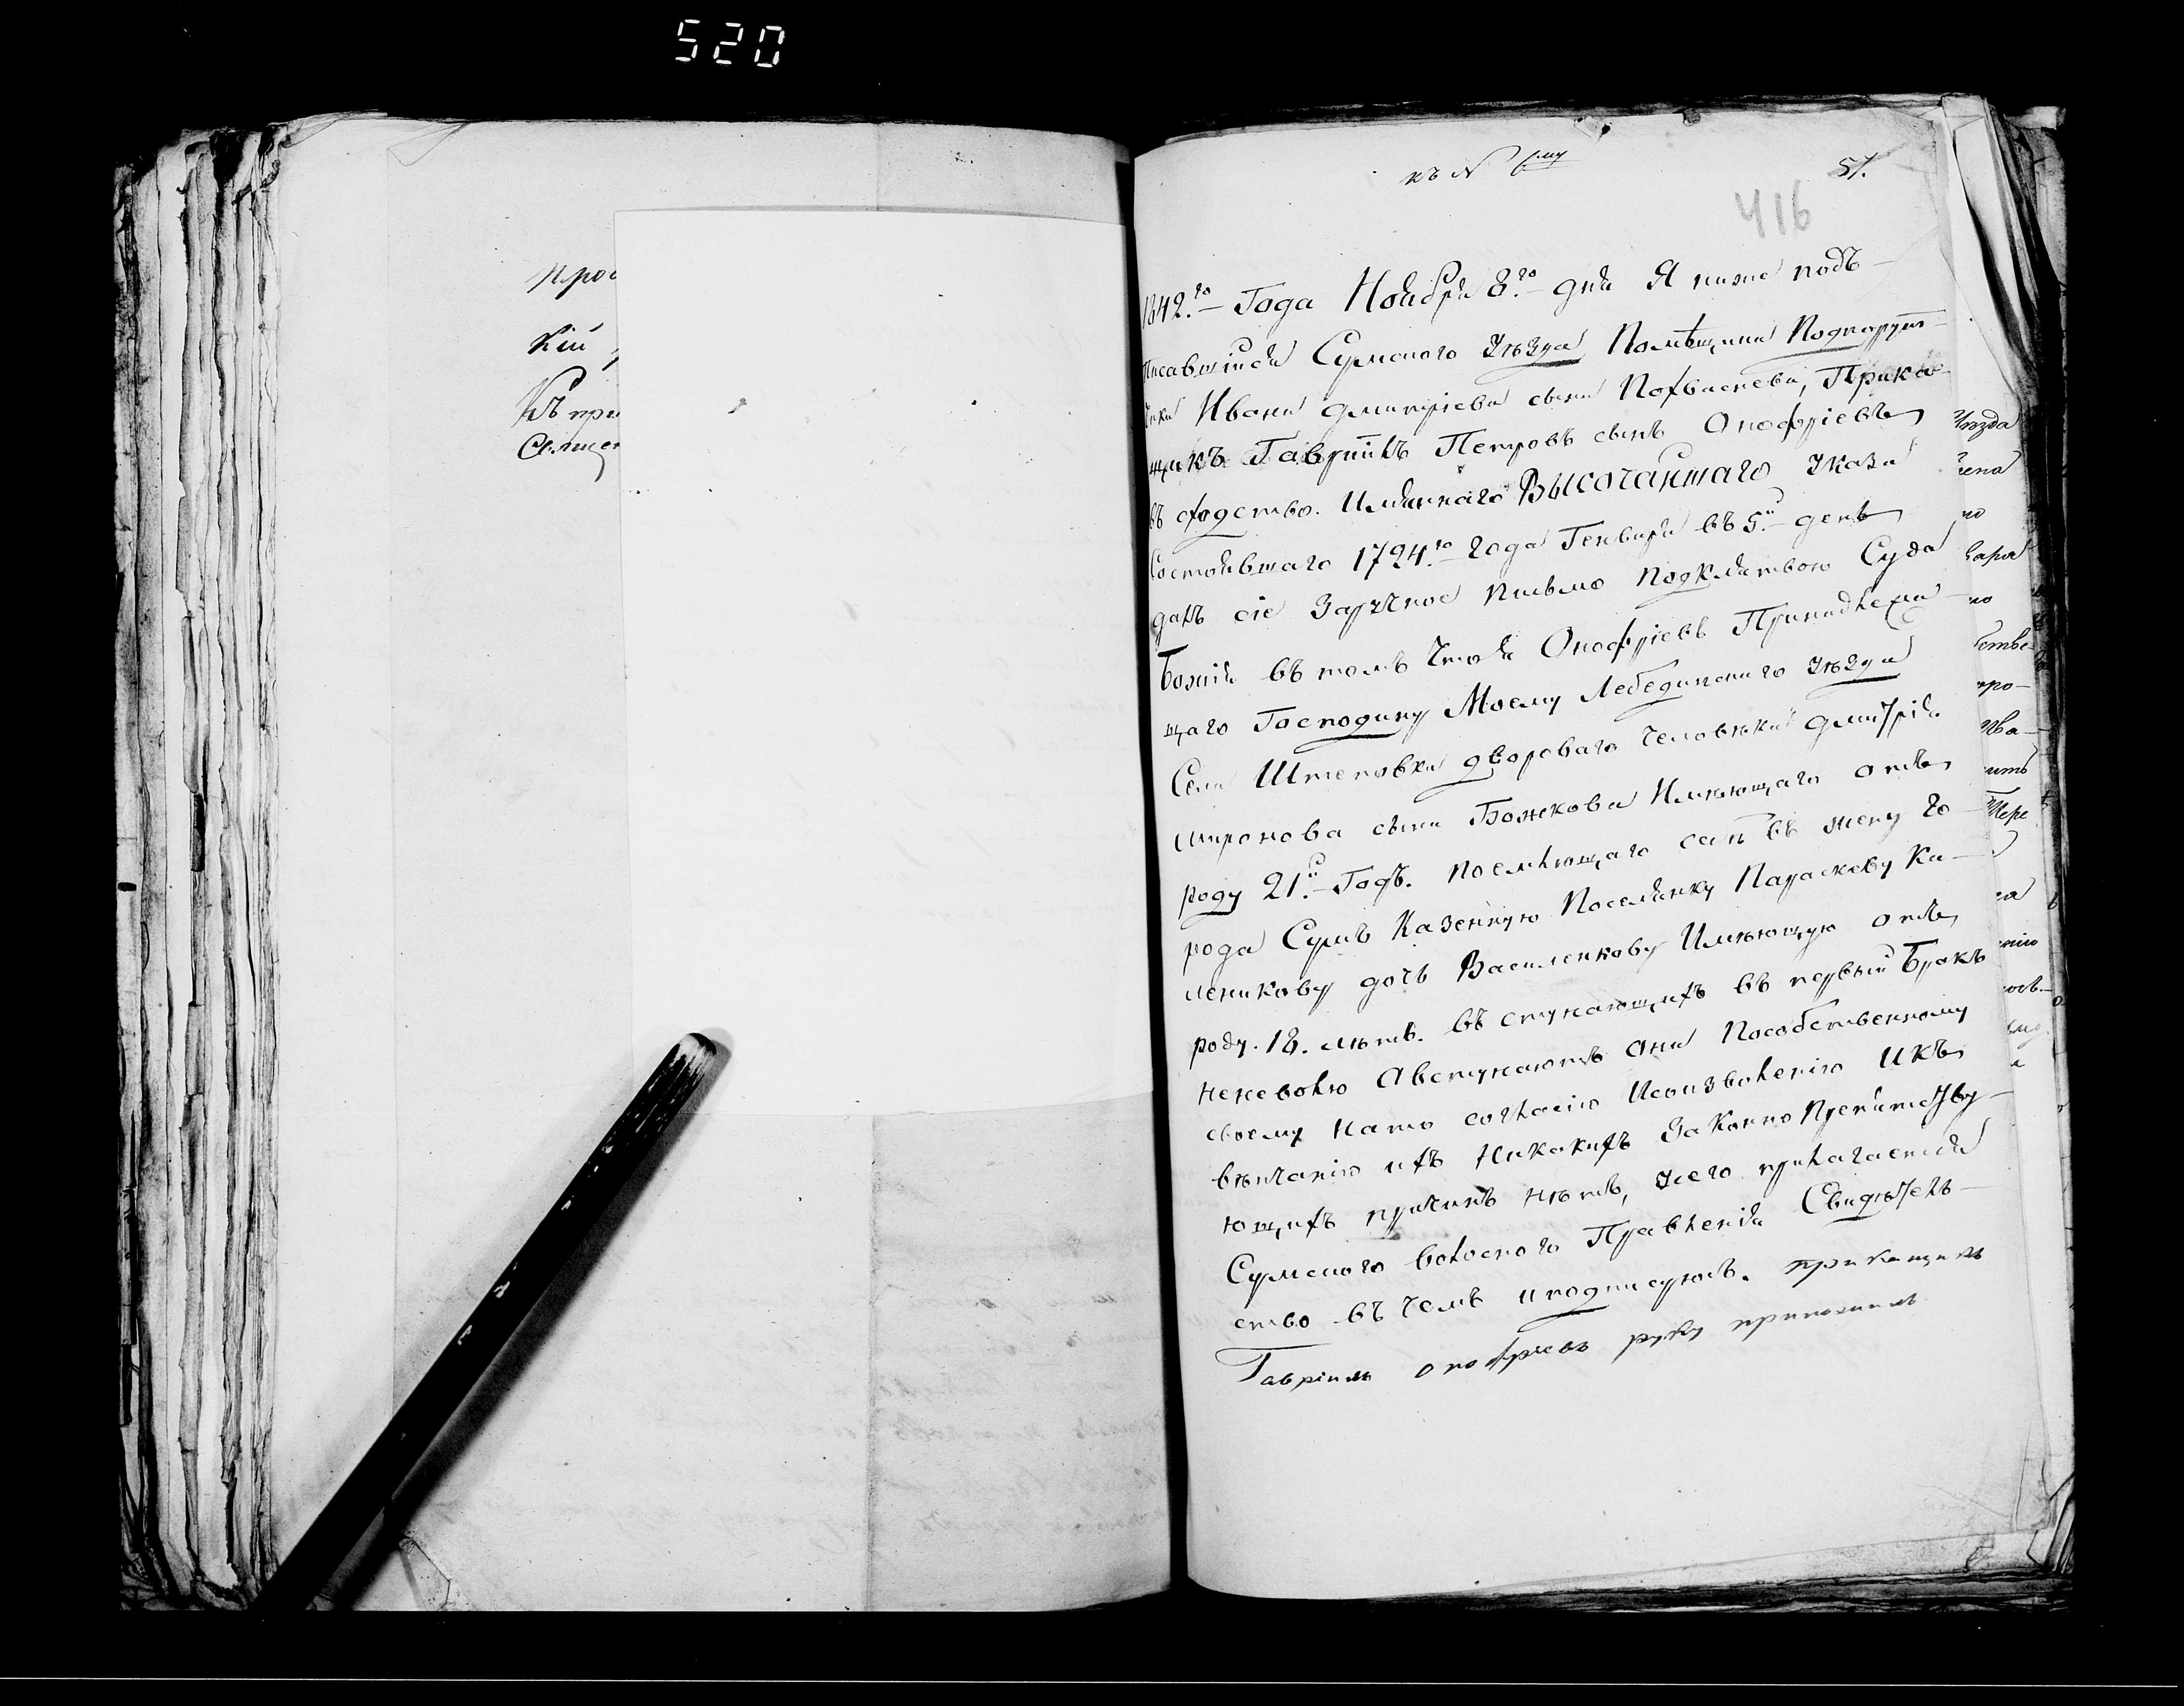 520
къ № 6му
51.
416
прос
кій
Къ при
Свящ
1842.го Года Ноября 8.го дня Я ниже подъ-
писавшійся Сумского уѣзда Помѣщика Подпоруш-
чика Ивана Дмитріева сына Похвиснева, Прика-
щикъ Гавріилъ Петровъ сынъ Онофріевъ
въ сходство. Имяннаго Высочайшаго указа
Состоявшаго 1724.го года Генваря въ 5.й день
далъ сіе Заручное письмо подклятвою Суда
Божія въ томъ Что я Онофріевъ Принадлежа-
щаго Господину Моему Лебединского уѣзда
Села Штеповки двороваго Человѣка Дмитрія
миронова сына Божкова Имѣющаго отъ
роду 21.й Годъ. поемлющаго себѣ въ жену Го-
рода Сумъ Казенную Поселянку Параскеву Ка-
леникову дочь Василенкову Имѣющую отъ
роду. 18. лѣтъ. въ ступающихъ въ первый Бракъ
неневолю Авступаютъ они Пособственному
своему нато согласію Исоизволенію Икъ
вѣнчанію ихъ Никакихъ Законно Препятству-
ющихъ причинъ нѣтъ, у чего прилагается
Сумского волосного Правленія Свидѣтель-
ство въ Чемъ иподписуюсь. прикащикъ
Гавріилъ онофріевъ руку приложилъ
уѣзда